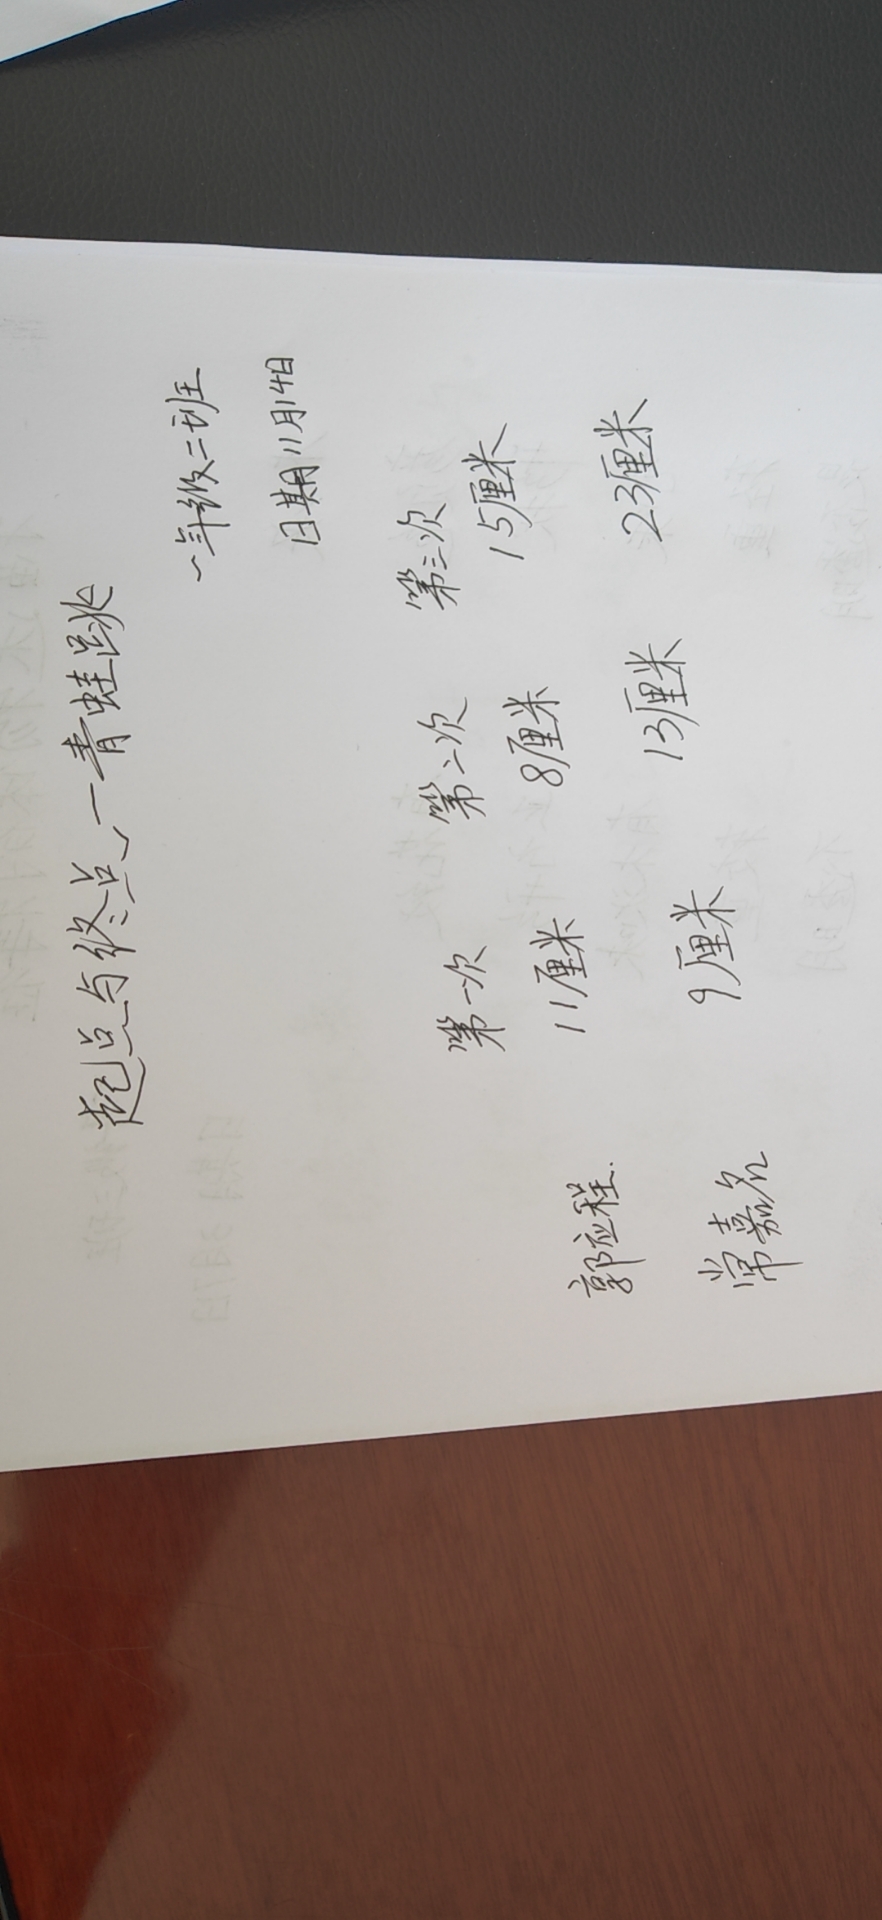 起点与终点——青蛙跳
一年级二班
日期11月14日
第一次 第二次 第三次
郭应程 11厘米 8厘米 15厘米
常嘉名 9厘米 13厘米 23厘米